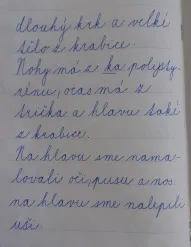 dlouhý krk a velké
tělo z krabice.
Nohy má z ka polysty-
rénu, ocas má z
trička a hlavu také
z krabice.
Na hlavu sme nama-
lovali oči, pusu a nos
na hlavu sme nalepili
uši.